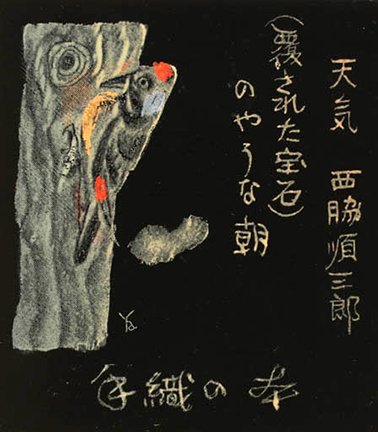 天気　西脇順三郎
（覆された宝石）
のやうな朝
手織の本